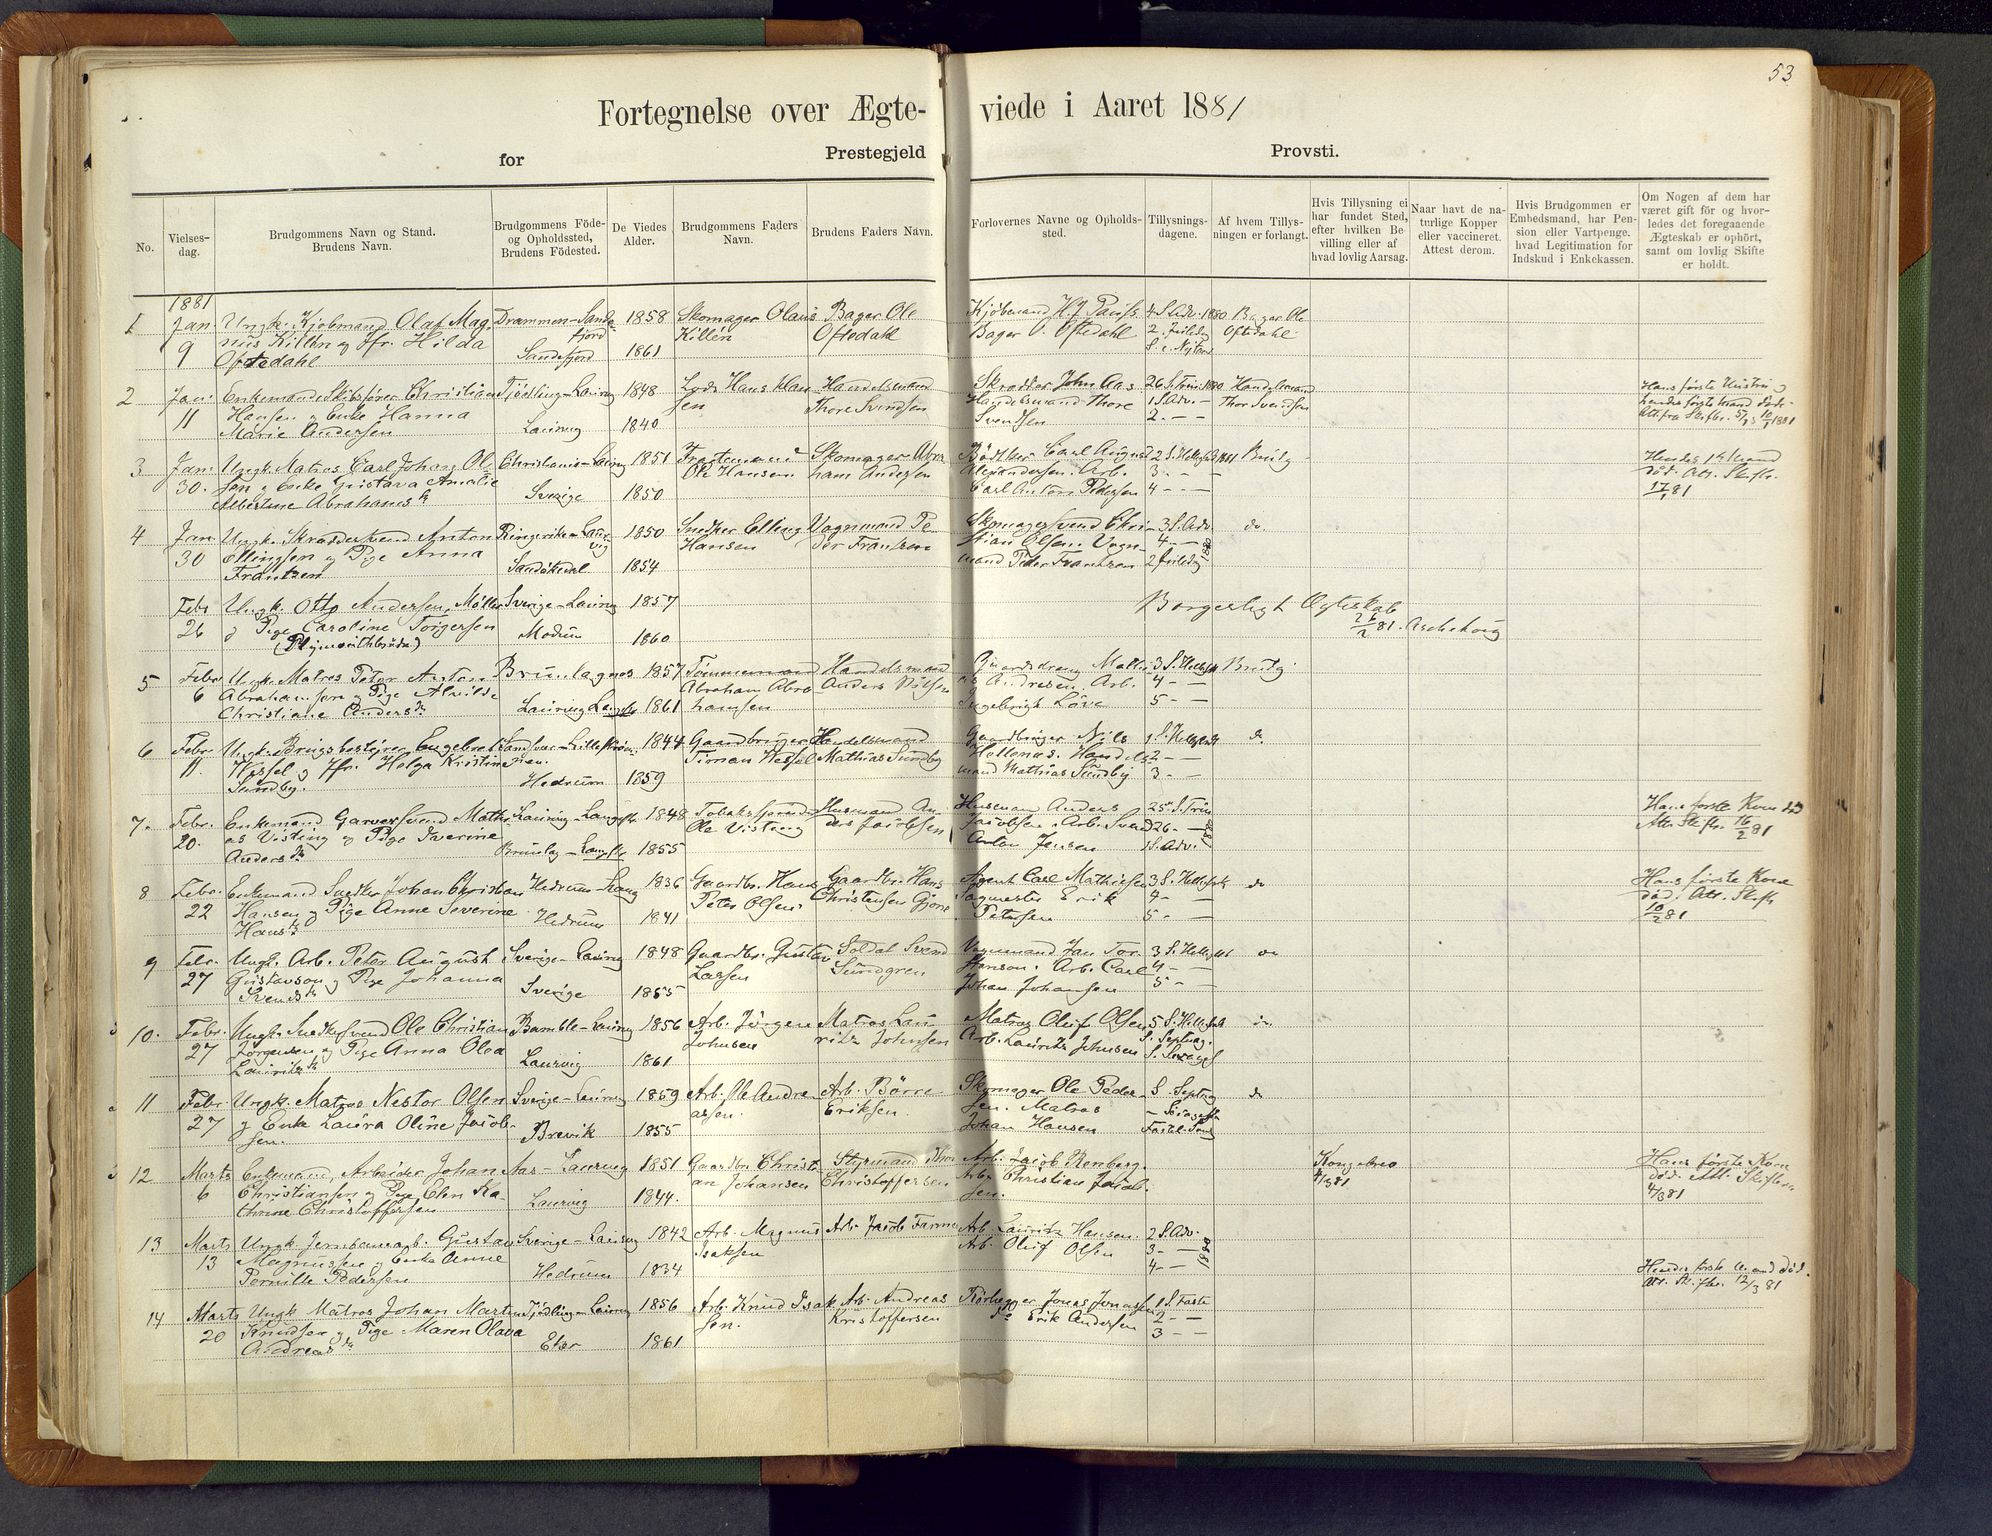 53
Fortegnelse over Ægte- viede i Aaret 1881
for Prestegjeld Provsti.
No.
Vielses-
dag.
Brudgommens Navn og Stand.
Brudens Navn.
Brudgommens Föde-
og Opholdssted,
Brudens Födested.
De Viedes
Alder.
Brudgommens Faders
Navn.
Brudens Faders Navn.
Forlovernes Navne og Opholds-
sted.
Tillysnings-
dagene.
Af hvem Tillys-
ningen er forlangt.
Hvis Tillysning ei
har fundet Sted,
efter hvilken Be-
villing eller af
hvad lovlig Aarsag.
Naar havt de na-
turlige Kopper
eller vaccineret.
Attest derom.
Hvis Brudgommen er
Embedsmand, har Pen-
sion eller Vartpenge.
hvad Legitimation for
Indskud i Enkekassen.
Om Nogen af dem har
været gift för og hvor-
ledes det foregaaende
Ægteskab er ophört,
samt om lovlig Skifte
er holdt.
1881
1 Jan. Ungk. Kjøbmand Olaf Mag- Drammen-Sande- 1858 Skomager Olaus Bager Ole Kjøbmand 4 S. Adv. 1880 Bager Ole
nus Killén og Jfr. Hilda fjord Killén Oftedahl Bager O. Oftedahl 2. Juledag Oftedahl
9 Oftedahl Sandefjord 1861 S. e. Nytaar
2 Jan. Enkemand Skibsfører Christian Tjødling-Laurvig 1848 Lods Hans Klau- Handelsmand Skrædder John Aas 26 S. Trin. 1880 Handelsmand Hans første Hustru og
11 Hansen og Enke Hanna sen Thore Svendsen Handelsmand Thore 1 S. Adv. - Thor Svendsen hendes første Mand døde
Marie Andersen Laurvig 1840 Svendsen 2 - - Att. fra Skiftr.
3 Jan. Ungk. Matros Carl Johan Ol- Christiania-Laurvig 1851 Ole Hansen Skomager Abra- Bødtker Carl August 2 S. H. 1881 Brudg. Hendes 1ste Mand
30. sen og Enke Gustava Amalie ham Andersen Alexandersen. Arb. 3 - - død. Att. Skiftr.
Albertine Abrahamsdr Sverige 1850 Carl Anton Pedersen 4 - - 17/1 81
4 Jan Ungk. Skræddersvend Anton Ringerike-Laur- 1850 Snedker Elling Vognmand Pe- Skomagersvend Chri- 3 S. Adv. do
30 Ellingsen og Pige Anna vig Hansen der Frantzen stian Olsen. Vogn- 4 - -
Frantzen Sandökedal 1854 mand Peder Frantzen 2 Juledag
Febr Ungk. Otto Andersen, Møller Sverige-Laurvig 1857 Borgerligt Ægteskab
26 og Pige Caroline Torgersen Modum 1860 26/2 81.
(Plymouthbrüder)
5 Febr Ungk. Matros Peter Anton Brunlagnes 1857 Tømmermand Handelsmand Gaardsdreng Mathi- 3 S. Brudg.
6 Abrahamsen og Pige Alvilde Abraham Abra- Anders Nilsen as Andresen. Arb. 4 - -
Christiane Andersdr Laurvig 1861 hamsen Ingebrigt Löve 5 - -
6 Febr. Ungk. Brugsbestyrer Engebret Sandsvær-Lilleström 1844 Gaardbruger Handelsmand Gaardbruger Nils 1 S. do
11. Hessel og Jfr. Helga Kristine Tirman Hessel Mathias Sundby Handels- 2 - -
Sundby. Hedrum 1859 mand Mathias Sundby 3 - -
7. Febr. Enkemand Garversvend Mathi- Laurvig 1848 Husmand An- Husmand Anders 25de S. Trin Hans første Kone død
20. as Visting og Pige Severine Ole Visting ders Jacobsen Jacobsen. Arb. Svend 26 - - Att. Skiftr. 16/2 81
Andersdr 1855 Anton Jensen 1 S. Adv.
8 Febr. Enkemand Snedker Johan Christian Hedrum-Laurvig 1836 Gaardbr. Hans Gaardbr. Hans Agent Carl Mathiesen 3 S. do Hans første Kone
22 Hansen og Pige Anne Severine Peter Olsen Christensen Erik 4 - - død. Att. Skiftr.
Hansdr Hedrum 1841 Petersen 5 - - 10/2 81
9 Febr. Ungk. Arb. Peter August Sverige-Laurvig 1848 Gaardbr. Gustav Soldat Svend Vognmand Jan Tor. 3 S. do
27 Gustavson og Pige Johanna Larsen Sundgren Hanson. Arb. Carl 4 - -
Svendsdr Sverige 1855 Johan Johansen 5 - -
10. Febr. Ungk. Snedkersvend Ole Christian Bamble-Laurvig 1856 Arb. Jörgen Matros Lau- Matros Oluf Olsen 5 S. do
27 Jørgensen og Pige Anna Olea Johnsen ritz Johnsen Arb. Lauritz Johnsen S. Septuag.
Lauritzdr Laurvig 1861 S. Sexag.
11 Febr Ungk. Matros Nestor Olsen Sverige-Laurvig 1859 Arb. Ole Andre- Arb. Börre Skomager Ole Peder- S. Septuag do
27 og Enke Laura Oline Jacob- assen. Eriksen. sen. Matros
sen. Brevik 1855 Johan Hansen Fastel. Sønd
12 Marts Enkemand, Arbeider Johan Aas-Laurvig 1851 Gaardbr. Christi- Styrmand Arb. Jacob Renberg. Kongebrev Hans første Kone
6 Christiansen og Pige Elen Ka- an Johansen Christoffersen Arb. Christian Jacob- 4/3 81 död. Att. Skiftr.
thrine Christoffersen Laurvig 1844. sen. 4/3 81
13 Marts Ungk. Jernbanearb. Gustav Sverige-Laurvig 1842 Arb. Magnus Arb. Jacob Arb. Lauritz Hansen 2 S. Adv.
13 Magnussen og Enke Anne Isaksen Arb. Oluf Olsen 3 - - Hendes første Mand död.
Pernille Pedersen Hedrum 1834 4 - - Att. Skiftr. 12/3 81
14 Marts Ungk. Matros Johan Martin Tjödling-Laurvig 1856 Arb. Knud Isak- Arb. Andreas Jonas Jonassen 1 S. Faste
20 Knudsen og Pige Maren Olava sen. Kristoffersen do Erik Andersen 2 - -
Andreasdr Eker 1861 3 - -